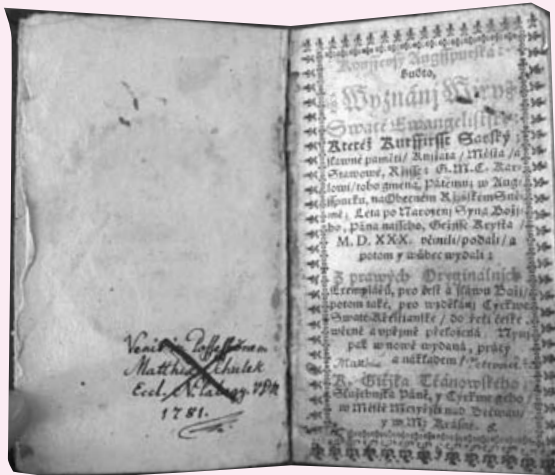 Venit in Possessionem
Matthiae Shulek
Eccl.
1781.
Konfessy Augsspurská:
buďto,
Wyznánj Wiry
Swaté Ewangelitské:
Kteréž Kurffirsst Saský;
slawné paměti/ Knjžata / Města/ a
Stawowé, Ržjsse: G. M. C. Kar-
lowi/ toho gména, Pátému; w Aug-
sspurku, na Obecném Ržjském Sně-
mě, Léta po Narozenj Syna Božj-
ho, Pána nasseho, Gežjsse Krysta/
M. D. XXX. včinili/ podali/ a
potom y wůbec wydali:
Z prawých Orygináních
Exemplářů, pro čest a sláwu Božj/
potom také, pro wzdělánj Cyrkwe
Swaté Křestianské/ do řeči české
wěrně a vpřjmě přeložená, Nynj
pak w nowě wydaná, pracý
a nákladem/
K. Giřjka Třánowského;
Služebnjka Páně, y Cyrkwe geho/
w Městě Mezyřjčj nad Bečwau/
y w Mž Krásné. &